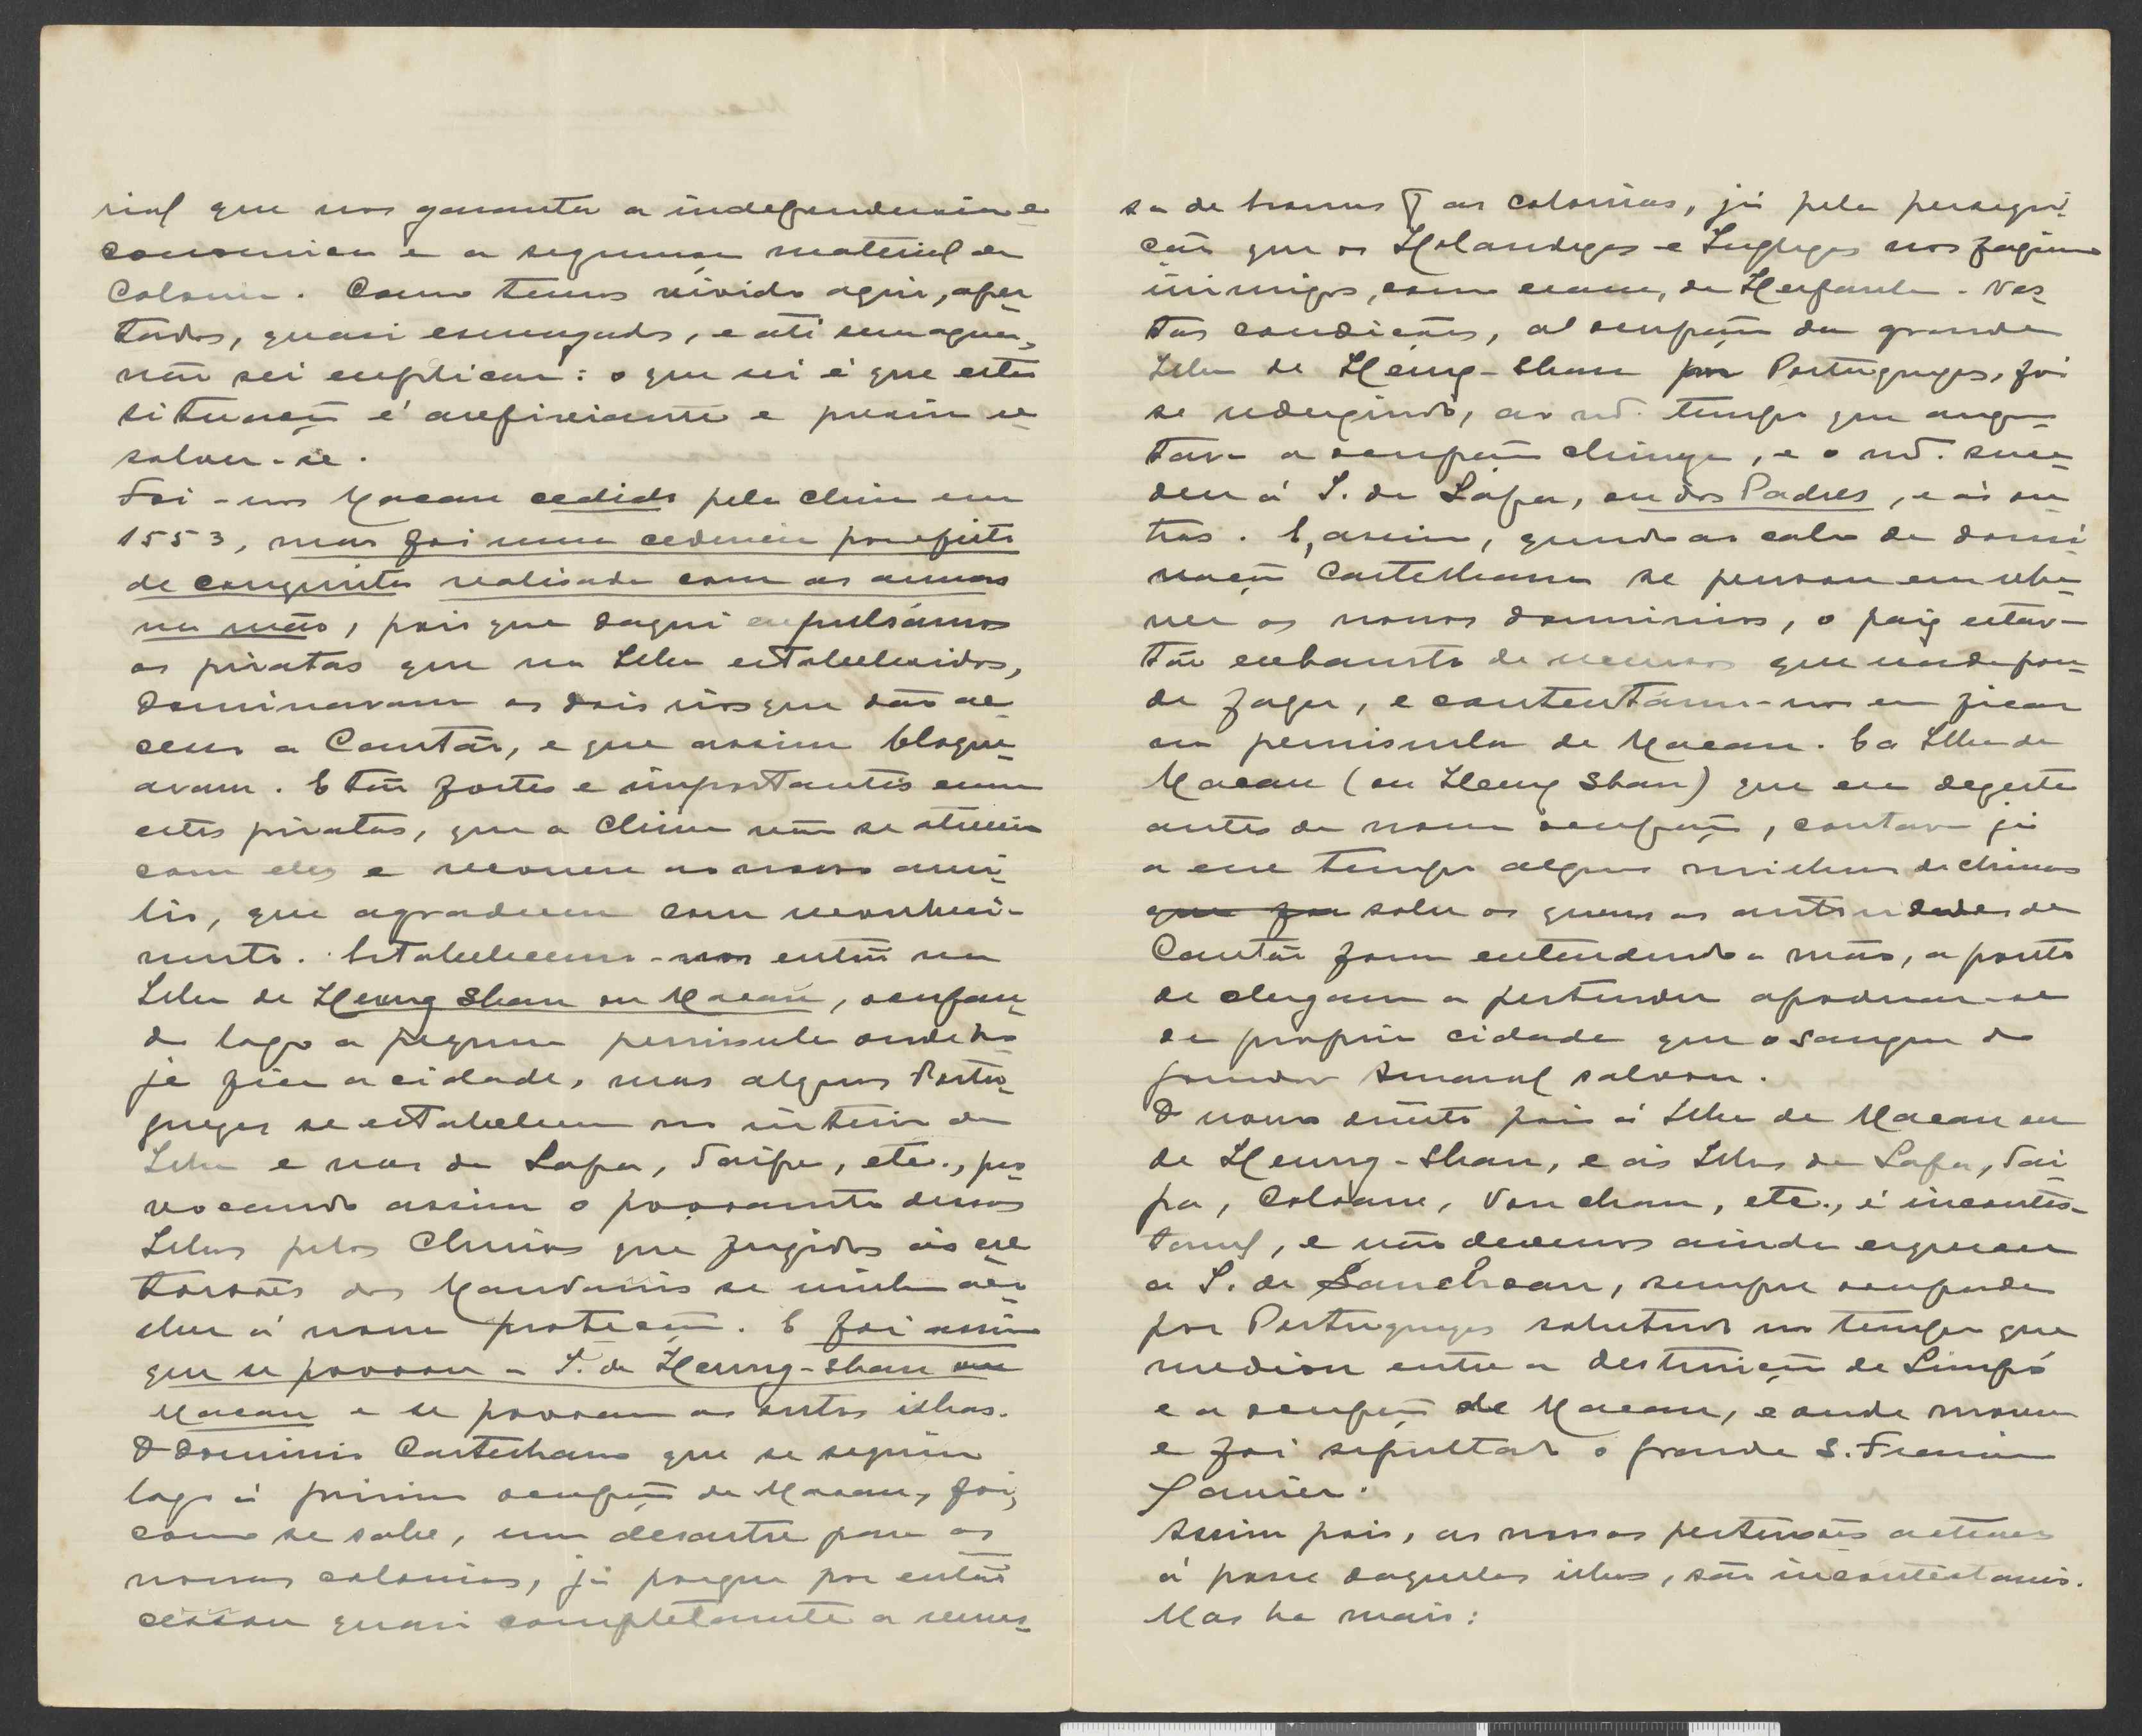 rial que nos garanta a independencia e
conomica e a segurança material da
Colonia. Como temos vivido aqui, aper
tados, quasi esmagados, e até sem agua,
não sei explicar: o que sei é que esta
situação é asfixiante e precisa re
solver-se.
Foi-nos Macau cedida pela China em
1553, mas foi uma cedencia por efeito
de conquista realisada com as armas
na mão, pois que daqui expulsámos
os piratas que na Ilha estabelecidos,
dominavam os dois rios que dão ac
cesso a Cantão, e que assim bloque
avam. E tão fortes e importantes eram
estes piratas, que a China não se atrevia
com eles e recorreu ao nosso auxi
lio, que agradeceu com reconheci-
mento. Estabelecemo-nos então na
Ilha de Heung Shan ou Macau, ocupan
do logo a pequena peninsula onde ho
je fica a cidade, mas alguns Portu
guezes se estabelecem no interior da
Ilha e nas da Lapa, Taipa, etc., pro
vocando assim o povoamento dessas
Ilhas pelos Chinas que fugidos ás ex
torsões dos Mandarins se vinham aco
lher á nossa proteção. E foi assim
que se povoou a I. de Heung-Shan ou
Macau e se povoaram as outras ilhas.
O dominio Castelhano que se seguiu
logo á primeira ocupação de Macau, foi,
como se sabe, um desastre para as
nossas colonias, já porque por então
cessou quasi completamente a remes
sa de homens pª as colonias, já pela persegui
ção que os Holandezes e Inglezes nos faziam
inimigos, como eram, da Hespanha. Nes
tas condições, a ocupação da grande
Ilha de Heung-Shan por Portuguezes, foi
se reduzindo, ao mº. tempo que aumen
tava a ocupação chineza, e o mº. suce
deu á I. da Lapa, ou dos Padres, e ás ou
tras. E, assim, quando ao cabo da domi
nação Castelhana se pensou em reha
ver os nossos dominios, o paiz estava
tão exhausto de recursos que nada pou
de fazer, e contentámo-nos em ficar
na peninsula de Macau. E a Ilha de
Macau (ou Heung Shan) que era dezerta
antes da nossa ocupação, contava já
a esse tempo alguns milhares de chinas
que foi sobre os quaes as autoridades de
Cantão foram estendendo a mão, a ponto
de chegarem a pertender apoderar-se
da propria cidade que o sangue do
governador Amaral salvou.
O nosso direito pois á Ilha de Macau ou
de Heung-Shan, e ás Ilhas da Lapa, Tai
pa, Coloane, Von cham, etc., é incontes-
tavel, e não devemos ainda esquecer
a I. de Sanchoan, sempre ocupada
por Portuguezes sobretudo no tempo que
mediou entre a destruição de Limpó
e a ocupação de Macau, e onde morreu
e foi sepultado o grande S. Francisco
Xavier.
Assim pois, as nossas pertensões actuaes
á posse daquelas ilhas, são incontestaveis.
Mas ha mais: